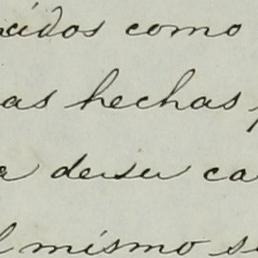 como
as hechas
de su ca
l mismo s